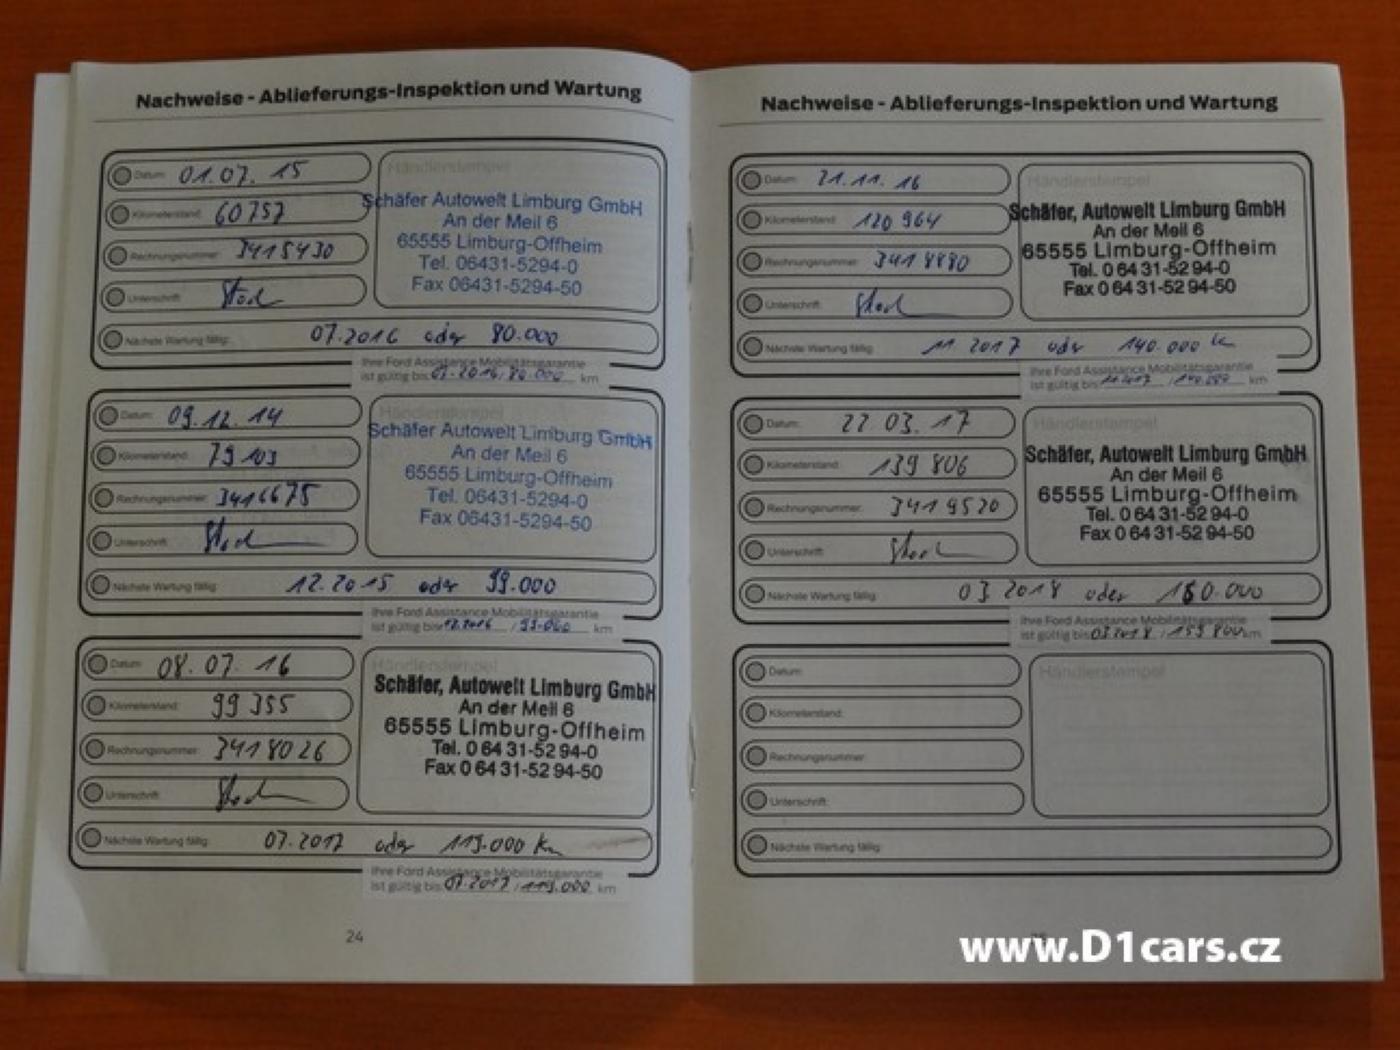 Nachweise - Ablieferungs-Inspektion und Wartung
Datum: 01.07.15
Händlerstempel
Kilometerstand: 60757
Rechnungsnummer: 3415430
Unterschrift:
Schäfer Autowelt Limburg GmbH
An der Meil 6
65555 Limburg-Offheim
Tel. 06431-5294-0
Fax 06431-5294-50
Nächste Wartung fällig: 07.2016 oder 80.000
Ihre Ford Assistance Mobilitätsgarantie
ist gültig bis 07.2016/80.000 km
Datum: 09.12.14
Händlerstempel
Kilometerstand: 79 103
Rechnungsnummer: 3416675
Unterschrift:
Schäfer Autowelt Limburg GmbH
An der Meil 6
65555 Limburg-Offheim
Tel. 06431-5294-0
Fax 06431-5294-50
Nächste Wartung fällig: 12.2015 oder 99.000
Ihre Ford Assistance Mobilitätsgarantie
ist gültig bis 12.2016 / 99.000 km
Datum: 08.07.16
Händlerstempel
Kilometerstand: 99 355
Rechnungsnummer: 3418026
Unterschrift:
Schäfer, Autowelt Limburg GmbH
An der Meil 6
65555 Limburg-Offheim
Tel. 0 64 31-52 94-0
Fax 0 64 31-52 94-50
Nächste Wartung fällig: 07.2017 oder 119.000 km
Ihre Ford Assistance Mobilitätsgarantie
ist gültig bis 07.2017 / 119.000 km
24
Nachweise - Ablieferungs-Inspektion und Wartung
Datum: 21.11.16
Händlerstempel
Kilometerstand: 120 964
Rechnungsnummer: 3418880
Unterschrift:
Schäfer, Autowelt Limburg GmbH
An der Meil 6
65555 Limburg-Offheim
Tel. 0 64 31-52 94-0
Fax 0 64 31-52 94-50
Nächste Wartung fällig: 11 2017 oder 140.000 km
Ihre Ford Assistance Mobilitätsgarantie
ist gültig bis 11.2017 / 140.000 km
Datum: 22 03.17
Händlerstempel
Kilometerstand: 139 806
Rechnungsnummer: 3419520
Unterschrift:
Schäfer, Autowelt Limburg GmbH
An der Meil 6
65555 Limburg-Offheim
Tel. 0 64 31-52 94-0
Fax 0 64 31-52 94-50
Nächste Wartung fällig: 03 2018 oder 160.000
Ihre Ford Assistance Mobilitätsgarantie
ist gültig bis 03.2018 / 159 800 km
Datum:
Händlerstempel
Kilometerstand:
Rechnungsnummer:
Unterschrift:
Nächste Wartung fällig:
www.D1cars.cz